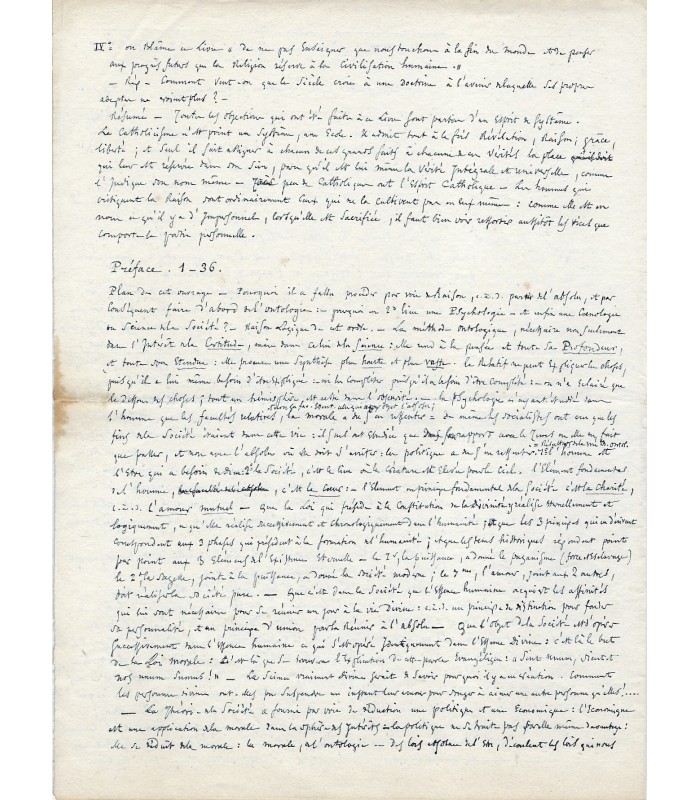 IV°= on blâme ce Livre « de ne pas Enseigner que nous touchons à la fin du monde et de penser
aux progrès futurs que la Religion réserve à la Civilisation humaine. »
— Rép — Comment veut-on que le Siècle croie à une Doctrine à l'avenir de laquelle ses propres
adeptes ne croient plus ? —
Résumé — Toutes les objections qui ont été faites à ce Livre sont parties d'un Esprit de Système.
Le Catholicisme n'est point un Système, une Ecole. Il admet tout à la fois Révélation, Raison ; grâce,
liberté ; et Seul il sait assigner à chacun de ces grands faits, à chacune de ces Vérités la place
qui leur est réservée dans son Sein, parce qu'il est lui même la Vérité Intégrale et universelle, comme
l'indique son nom même — peu de Catholiques ont l'Esprit Catholique — Les hommes qui
critiquent la Raison sont ordinairement Ceux qui ne la cultivent pas en Eux mêmes : comme Elle est en
nous ce qu'il y a d'Impersonnel, lorsqu'Elle est Sacrifiée, il faut bien voir ressortir aussitôt les vices que
comporte la partie personnelle.
Préface . 1-36.
Plan de cet ouvrage — Pourquoi il a fallu procéder par voie de Raison, c.à.d. partir de l'absolu, et par
Conséquent faire d'abord de l'ontologie : — pourquoi en 2d lieu une Psychologie — et enfin une
ou Science de la Société ? — Raison Logique de cet ordre. — La méthode ontologique, nécessaire non seulement
dans l'Intérêt de la Certitude, mais dans celui de la Science : Elle rend à la pensée et toute sa Profondeur,
et toute son Etendue : Elle procure une Synthèse plus haute et plus vaste. le Relatif ne peut Expliquer les choses,
puisqu'il a lui même besoin d'être Expliqué : — ni les Compléter puisqu'il a besoin d'être Complété : — on n'a Eclairé que
le dessous des choses ; tout un hémisphère est resté dans l'obscurité. — la Psychologie n'ayant étudié dans
l'homme que les facultés relatives, la morale a — de même les Socialistes ont cru que les
fins de la Société étaient dans cette vie : ils l'ont Etudiée que
que passer, et non avec l'absolu où Elle doit s'arrêter : la politique a l'homme est
l'Etre qui a besoin de la Société, c'est le lieu où la Créature est élevée pour le Ciel. l'Elément fondamental
de l'homme, c'est le cœur : — l'Elément ou principe fondamental de la Société c'est la Charité,
c.à.d. l'amour mutuel — Que la Loi qui préside à la Constitution de la Divinité et s'y réalise Eternellement et
logiquement, se réalise Successivement et chronologiquement dans l'humanité ; que les 3 principes qui en dérivent
correspondent aux 3 phases qui président à la formation de l'humanité ; et que les tems historiques répondent point
par point aux 3 Elémens de l'Existence Eternelle — le 1er, la Puissance, a donné le paganisme (force et Esclavage)
le 2e la Sagesse, jointe à la puissance, a donné la société moderne ; le 3me, l'amour, joint aux 2 autres,
doit réaliser la Société pure. — Que c'est dans la Société que l'Essence humaine acquiert les affinités
qui lui sont nécessaires pour se réunir un jour à la vie Divine : c.à.d. un principe de distinction pour fonder
sa personnalité, et un principe d'union pour la Réunir à l'absolu — Que l'objet de la Société est d'opérer
Successivement dans l'Essence humaine ce qui s'est opéré Identiquement dans l'Essence Divine : c'est là le but
de la Loi morale : C'est là que se trouve l'Explication de cette parole Evangélique : « Sint unum, sicut et
nos unum Sumus ! » — La Science vraiment divine serait de Savoir pourquoi il y a eu création. Comment
les personnes divines ont-elles pu suspendre un instant leur amour pour songer à aimer une autre personne qu'Elles !....
— La Théorie de la Société a fourni par voie de déduction une politique et une Economique : l'Economique
est une application de la morale dans la Sphère des Intérêts — la politique ne se traite pas d'Elle même davantage :
Elle se déduit de la morale : la morale, de l'ontologie — des lois absolues de l'Etre, découlent les lois qui nous